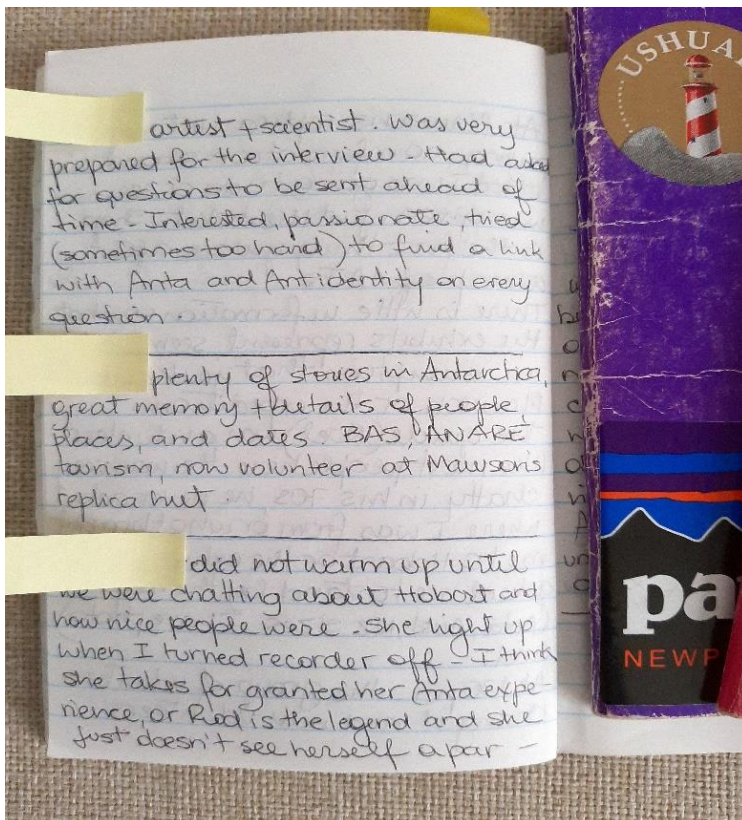 artist + scientist. Was very
prepared for the interview - Had asked
for questions to be sent ahead of
time - Interested, passionate, tried
(sometimes too hard) to find a link
with Anta and Ant identity on every
question.
plenty of stories in Antarctica,
great memory + details of people,
places, and dates. BAS, ANARE
tourism, now volunteer at Mawson's
replica hut
did not warm up until
we were chatting about Hobart and
how nice people were. She light up
when I turned recorder off - I think
she takes for granted her Anta expe
rience, or Rod is the legend and she
just doesn't see herself apar -
USHUAI
pa
NEWP